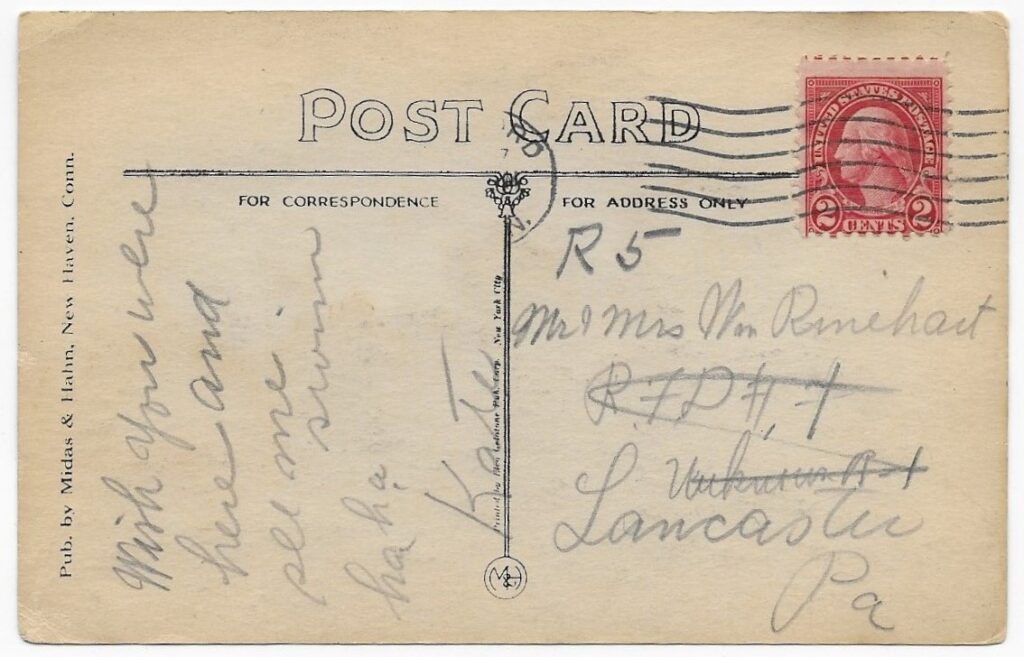 POST CARD
FOR CORRESPONDENCE
FOR ADDRESS ONLY
UNITED STATES POSTAGE
2 CENTS 2
Pub. by Midas & Hahn, New Haven, Conn.
Wish you were
here and
see me
swim
ha ha
Kate
New York City
M&H
R 5
Mr & Mrs Wm Rinehart
R.F.D #
Unknown R 1
Lancaster
Pa